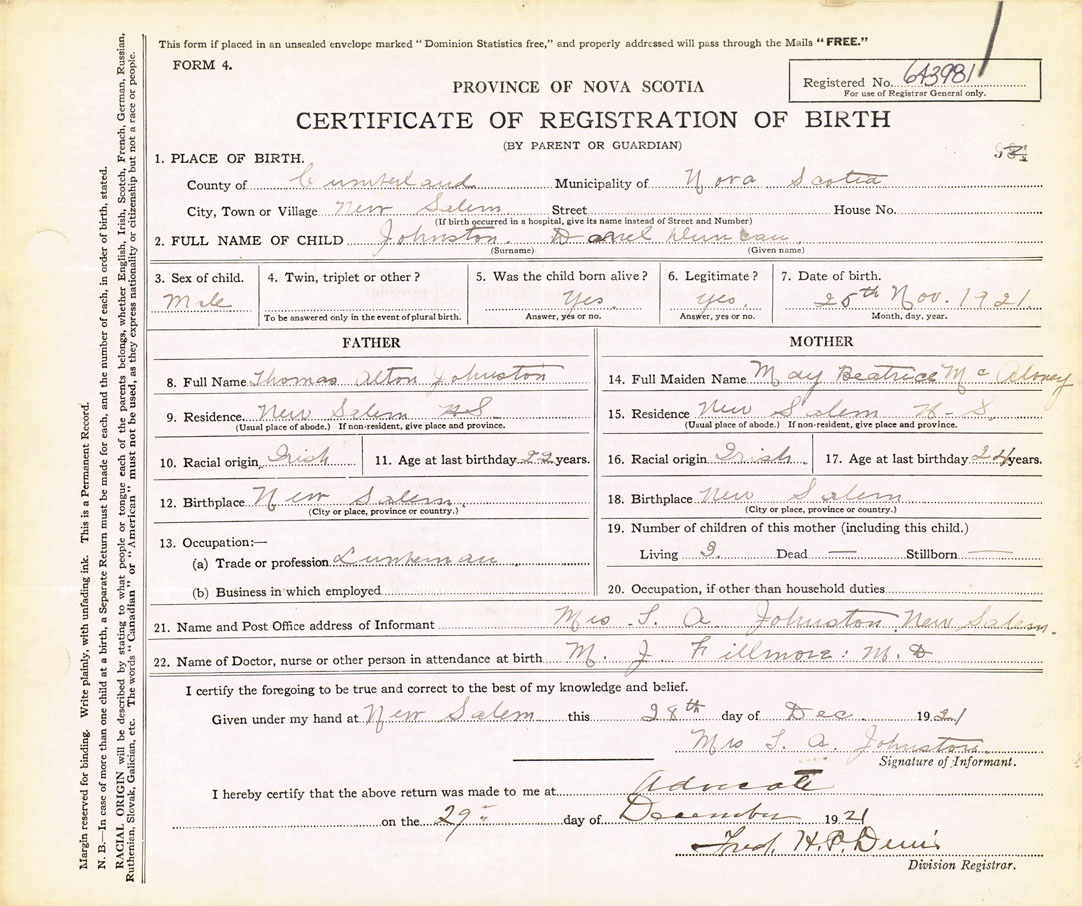 This form if placed in an unsealed envelope marked "Dominion Statistics free," and properly addressed will pass through the Mails "FREE."
FORM 4.
Registered No. 643981
For use of Registrar General only.
PROVINCE OF NOVA SCOTIA
CERTIFICATE OF REGISTRATION OF BIRTH
(BY PARENT OR GUARDIAN)
1. PLACE OF BIRTH.
County of Cumberland Municipality of Nova Scotia
City, Town or Village New Salem Street House No.
(If birth occurred in a hospital, give its name instead of Street and Number)
2. FULL NAME OF CHILD Johnston. Duncan
(Surname) (Given name)
3. Sex of child. 4. Twin, triplet or other? 5. Was the child born alive? 6. Legitimate? 7. Date of birth.
Male Yes Yes. 25th Nov. 1921
To be answered only in the event of plural birth. Answer, yes or no. Answer, yes or no. Month, day, year.
FATHER
8. Full Name Thomas Alton Johnston
9. Residence. New Salem N.S.
(Usual place of abode.) If non-resident, give place and province.
10. Racial origin. Irish 11. Age at last birthday years.
12. Birthplace New Salem.
(City or place, province or country.)
13. Occupation:—
(a) Trade or profession Lumberman
(b) Business in which employed
MOTHER
14. Full Maiden Name May Beatrice McAloney
15. Residence New Salem N-S
(Usual place of abode.) If non-resident, give place and province.
16. Racial origin Irish. 17. Age at last birthday 24 years.
18. Birthplace New Salem
(City or place, province or country.)
19. Number of children of this mother (including this child.)
Living 3. Dead — Stillborn —
20. Occupation, if other than household duties
21. Name and Post Office address of Informant Mrs. T. A. Johnston New Salem.
22. Name of Doctor, nurse or other person in attendance at birth M. J. Fillmore: M.D
I certify the foregoing to be true and correct to the best of my knowledge and belief.
Given under my hand at New Salem this 28th day of Dec. 1921
Mrs T. A. Johnston.
Signature of Informant.
I hereby certify that the above return was made to me at Advocate
on the 29" day of December 1921
Fred. H. P. Denis
Division Registrar.
Margin reserved for binding. Write plainly, with unfading ink. This is a Permanent Record.
N. B.—In case of more than one child at a birth, a Separate Return must be made for each, and the number of each, in order of birth, stated.
RACIAL ORIGIN will be described by stating to what people or tongue each of the parents belongs, whether English, Irish, Scotch, French, German, Russian,
Ruthenian, Slovak, Galician, etc. The words "Canadian" or "American" must not be used, as they express nationality or citizenship but not a race or people.